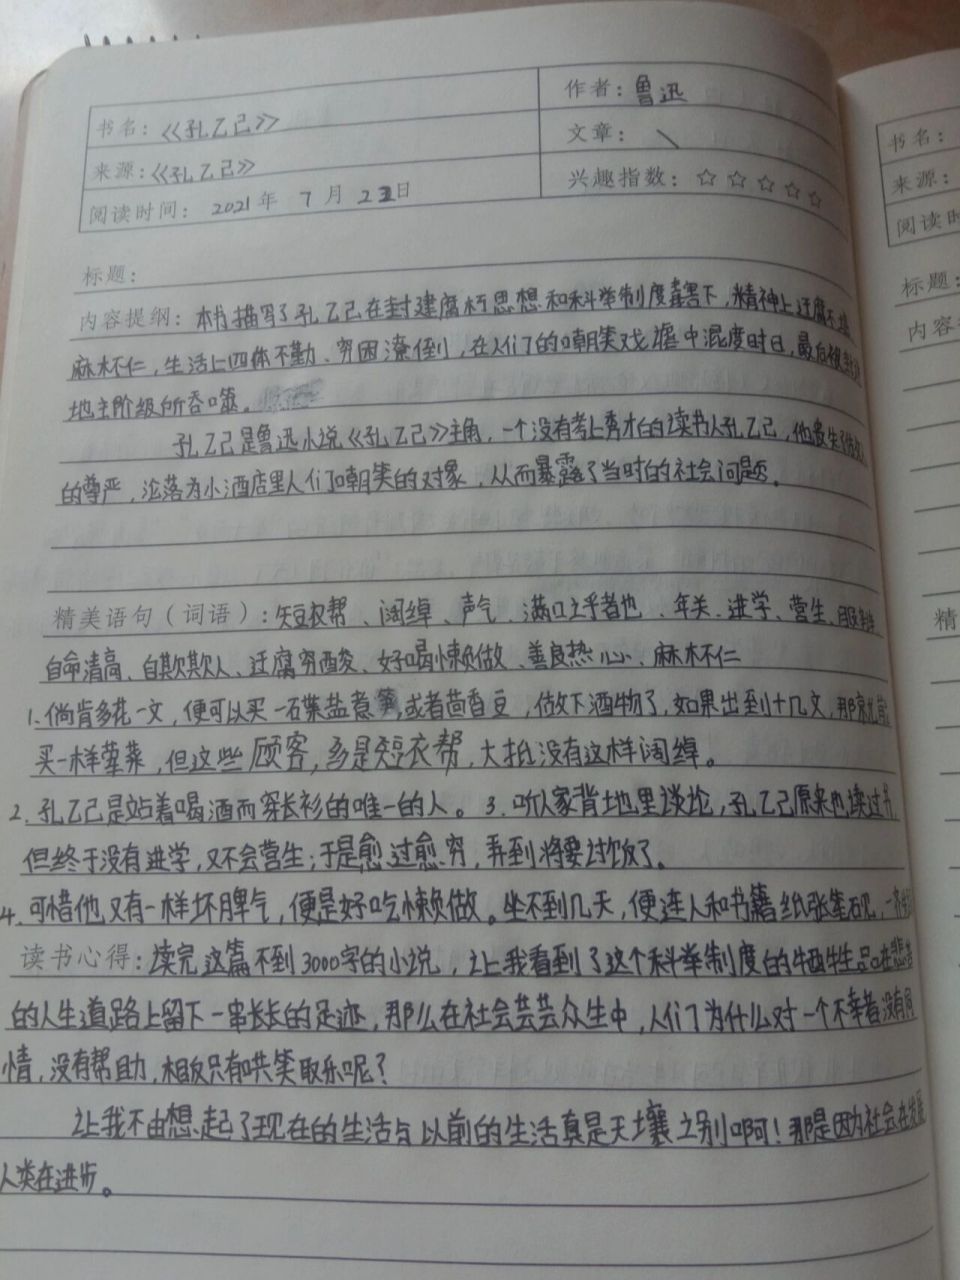 书名：《孔乙己》
作者：鲁迅
来源：《孔乙己》
文章：
阅读时间： 2021 年 7 月 23 日
兴趣指数：☆☆☆☆☆
标题：
内容提纲：本书描写了孔乙己在封建腐朽思想和科举制度毒害下，精神上迂腐不堪
麻木不仁，生活上四体不勤、穷困潦倒，在人们的嘲笑戏谑中混度时日，最后被封建
地主阶级所吞噬。
孔乙己是鲁迅小说《孔乙己》主角，一个没有考上秀才的读书人孔乙己，他丧失了
的尊严，沦落为小酒店里人们嘲笑的对象，从而暴露了当时的社会问题。
精美语句（词语）：短衣帮、阔绰、声气、满口之乎者也、年关、进学、营生、
自命清高、自欺欺人、迂腐穷酸、好喝懒做、善良热心、麻木不仁
1.倘肯多花一文，便可以买一碟盐煮笋，或者茴香豆，做下酒物了，如果出到十几文，那就能
买一样荤菜，但这些顾客，多是短衣帮，大抵没有这样阔绰。
2.孔乙己是站着喝酒而穿长衫的唯一的人。3.听人家背地里谈论，孔乙己原来也读过书
但终于没有进学，又不会营生；于是愈过愈穷，弄到将要讨饭了。
4.可惜他又有一样坏脾气，便是好吃懒做。坐不到几天，便连人和书籍纸张笔砚，一齐
读书心得：读完这篇不到3000字的小说，让我看到了这个科举制度的牺牲品在悲苦
的人生道路上留下一串长长的足迹，那么在社会芸芸众生中，人们为什么对一个不幸者没有同
情，没有帮助，相反只有哄笑取乐呢？
让我不由想起了现在的生活与以前的生活真是天壤之别啊！那是因为社会在发展
人类在进步。
书名：
来源：
阅读时
标题：
内容
精